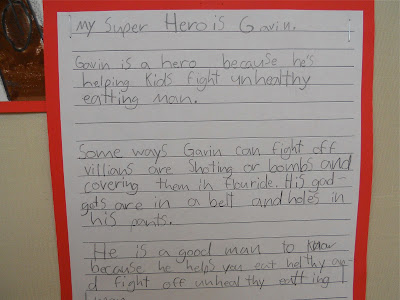 My Super Hero is Gavin.
Gavin is a hero because he's
helping Kids fight unhealthy
eatting man.
Some ways Gavin can fight off
villians are Shoting or bombs and
covering them in flouride. His gad-
gets are in a belt and holes in
his pants.
He is a good man to know
because he helps you eat helthy an-
d fight off unhealthy eatting